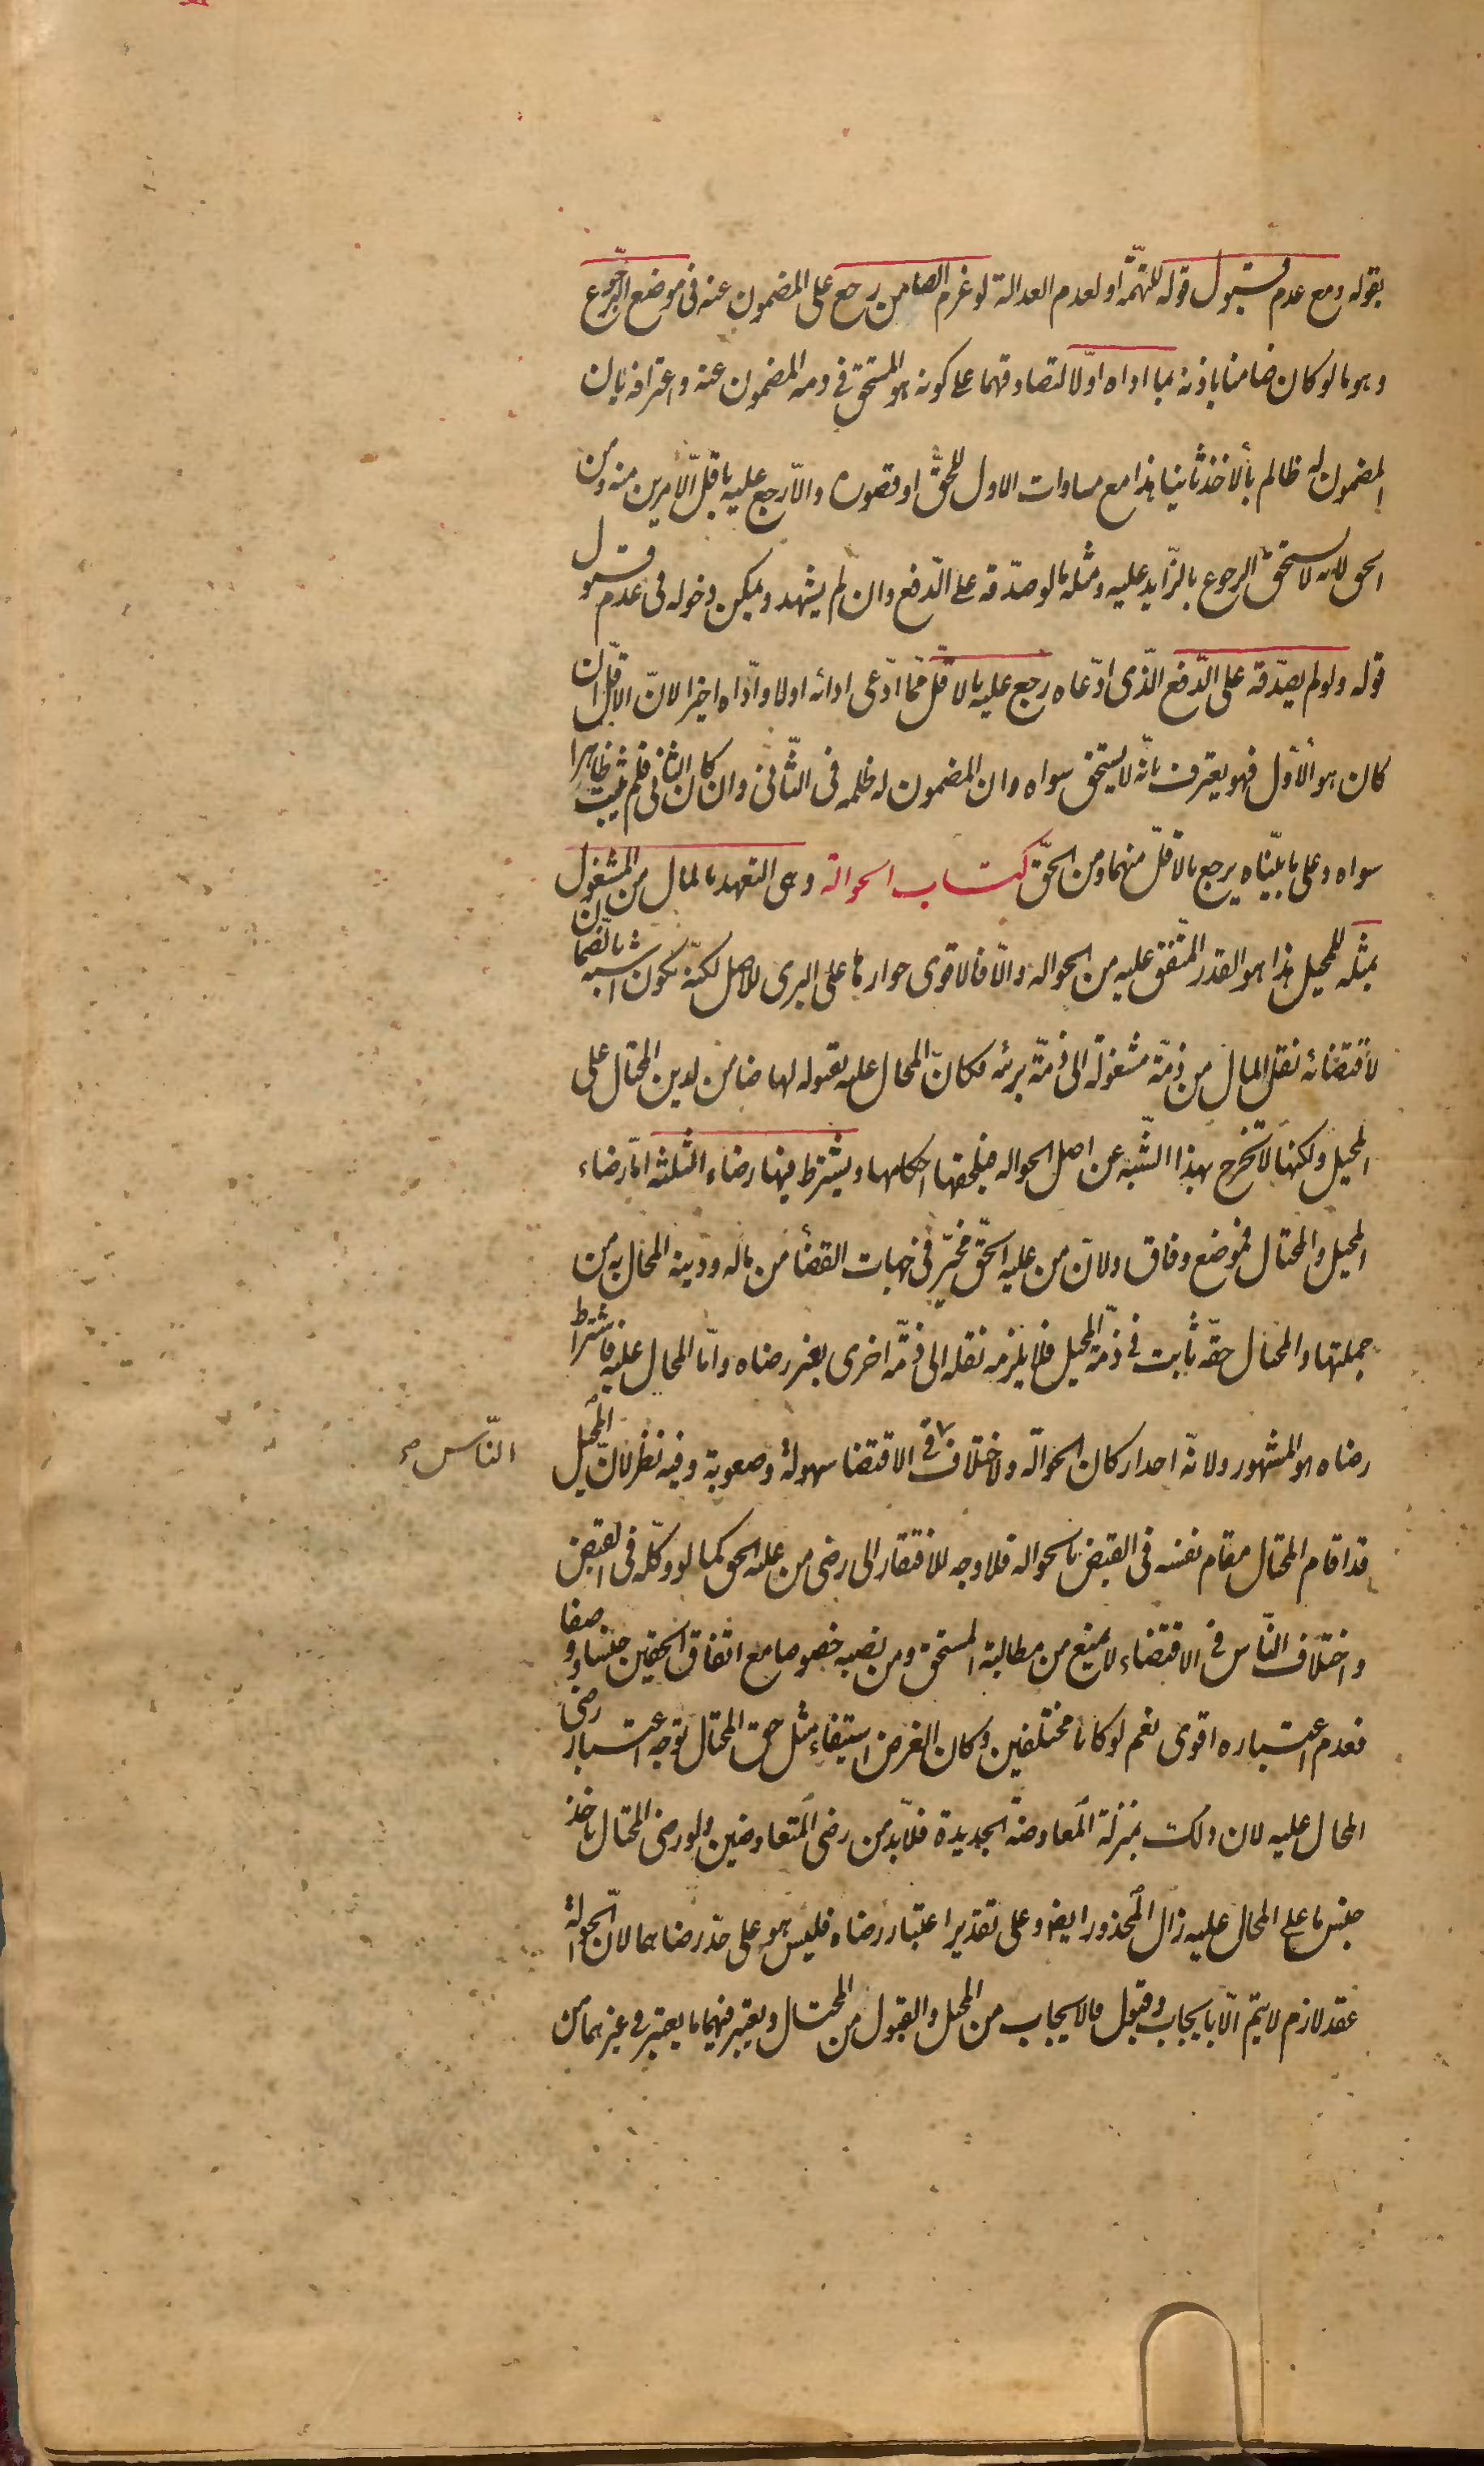 بقوله ومع عدم قبول قوله للتهمّة او لعدم العدالة لو غرم الضامن رجع على المضمون عنه فى موضع الرّجوع
و هو ما لو كان ضامنا باذنه بما اداه اوّلا لتصادقهما على كونه هو المستحق فى ذمه المضمون عنه و اعترافه بان
المضمون له ظالم بألاخذ ثانيا هذا مع مساوات الاول للحقّ او قصوره والاّ رجع عليه باقلّ الامرين منه و من
الحق لانه لا يستحق الرجوع بالزّايد عليه و مثله ما لو صدّقه على الدّفع وان لم يشهد و يمكن دخوله فى عدم قبول
قوله ولو لم يصدّقه على الدّفع الّذى ادّعاه رجع عليه بالاقلّ ممّا ادّعى ادائه اولا و ادّاه اخيرا لانّ الاقلّ ان
كان هو ألأوّل فهو يعترف بانّه لا يستحق سواه وان المضمون له ظلمه فى الثّانى وان كان الثانى فلم يثبت ظاهرا
سواه و على ما بيّناه يرجع بالاقلّ منهما و من الحقّ كتاب الحوالة وهى التعهد بالمال من المشغول
بمثله للمحيل هذا هو القدر المتّفق عليه من الحواله والاّ فالاقوى جوازها على البرى للاصل لكنّه يكون اشبه بالضمان
لأقتضائه نقل المال من ذمّة مشغولة الى ذمّة بريئه فكانّ المحال عليه بقبوله لها ضامن لدين المحتال على
المحيل ولكنها لا تخرج بهذا الشّبه عن اصل الحواله فيلحقها احكامها و يشترط فيها رضاء الثلثه امّا رضاء
المحيل والمحتال فموضع وفاق ولانّ من عليه الحّق مخيّر فى جهات القضأ من ماله ودينه المحال به من
جملتها و المحتال حقّه ثابت فى ذمّة المحيل فلا يلزمه نقله الى ذمّة اخرى بغير رضاه وامّا المحال عليه فاشتراط
رضاه هو المشهور ولانّه احد اركان الحوالّه ولاختلاف فى الاقتضا سهولة وصعوبة وفيه نظر لانّ المحيل
النّاس صح
قد اقام المحتال مقام نفسه فى القبض بالحواله فلا وجه للافتقار الى رضى من عليه الحق كما لو وكّله فى القبض
و اختلاف النّاس فى الاقتضاء لا يمنع من مطالبة المستحق ومن نصبه خصوصا مع اتفاق الحقين جنسا و وصفا
فعدم اعتباره اقوى نعم لو كانا مختلفين وكان الغرض استيفاء مثل حق المحتال توجه اعتبار رضى
المحال عليه لان ذلك بمنزلة المعاوضة الجديدة فلابّد من رضى المتعاوضين ولو رضى المحتال باخذ
جنس ما على المحال عليه زال المحذور ايضا وعلى تقدير اعتبار رضاه فليس هو على حد رضاهما لانّ الحوالة
عقد لازم لا يتمّ الّا بايجاب وقبول فالايجاب من المحيل والقبول من المحتال ويعتبر فيهما ما يعتبر فى غيرهما من